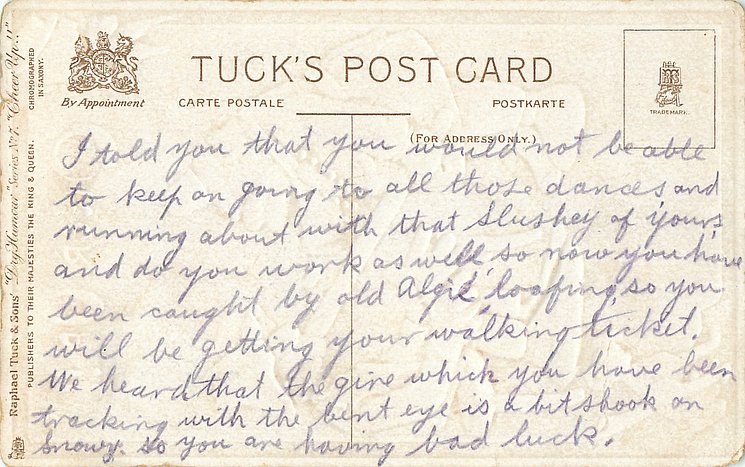 TUCK'S POST CARD
By Appointment
CARTE POSTALE
POSTKARTE
(FOR ADDRESS ONLY.)
TRADE MARK.
Raphael Tuck & Sons' "Dry Humour" Series No 7. "Cheer Up!!"
PUBLISHERS TO THEIR MAJESTIES THE KING & QUEEN.
CHROMOGRAPHED
IN SAXONY.
I told you that you would not be able
to keep on going to all those dances and
running about with that Slushey of yours
and do you work as well, so now you have
been caught by old Algie, loafing, so you
will be getting your walking ticket.
We heard that the give which you have been
tracking with the bent eye is a bit shook on
Snowy. so you are having bad luck.